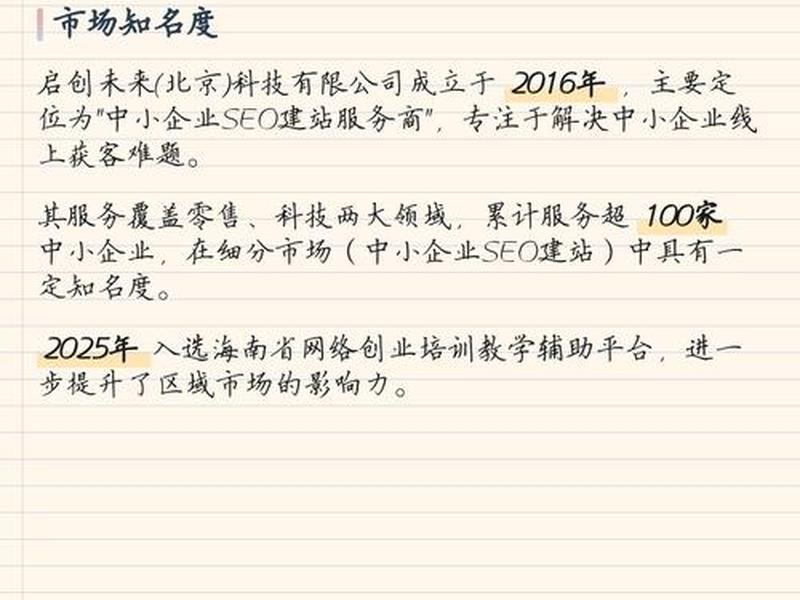 市场知名度
启创未来(北京)科技有限公司成立于 2016年 ，主要定
位为"中小企业SEO建站服务商"，专注于解决中小企业线
上获客难题。
其服务覆盖零售、科技两大领域，累计服务超 100家
中小企业，在细分市场（中小企业SEO建站）中具有一
定知名度。
2025年 入选海南省网络创业培训教学辅助平台，进一
步提升了区域市场的影响力。